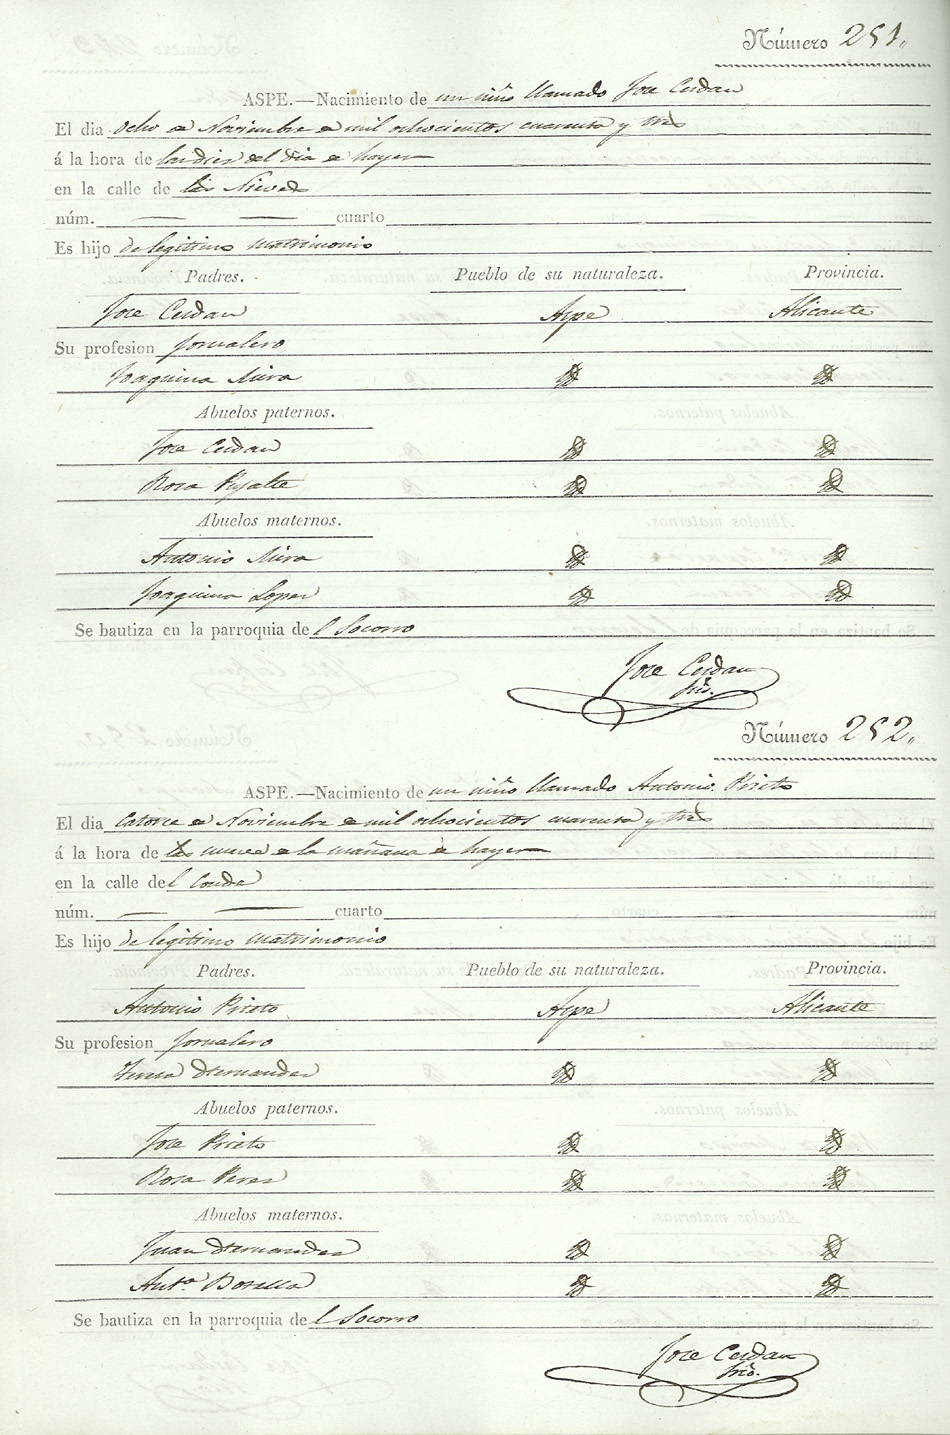 Número 251.
ASPE.—Nacimiento de un niño llamado Jose Cerdan
El dia ocho de Noviembre de mil ochocientos cuarenta y tres
á la hora de las dies del dia de hayer
en la calle de las Nieves
núm. — — cuarto
Es hijo de legitimo matrimonio
Padres. Pueblo de su naturaleza. Provincia.
Jose Cerdan Aspe Alicante
Su profesion Jornalero
Joaquina Mira
Abuelos paternos.
Jose Cerdan
Rosa
Abuelos maternos.
Antonio Mira
Joaquina Lopes
Se bautiza en la parroquia del Socorro
Jose Cerdan
Número 252.
ASPE.—Nacimiento de un niño llamado Antonio Prieto
El dia catorce de Noviembre de mil ochocientos cuarenta y tres
á la hora de las nueve de la mañana de hayer
en la calle del Conde
núm. — — cuarto
Es hijo de legitimo matrimonio
Padres. Pueblo de su naturaleza. Provincia.
Antonio Prieto Aspe Alicante
Su profesion Jornalero
Teresa Hernandes
Abuelos paternos.
Jose Prieto
Rosa Peres
Abuelos maternos.
Juan Hernandes
Ant.ª Botella
Se bautiza en la parroquia del Socorro
Jose Cerdan